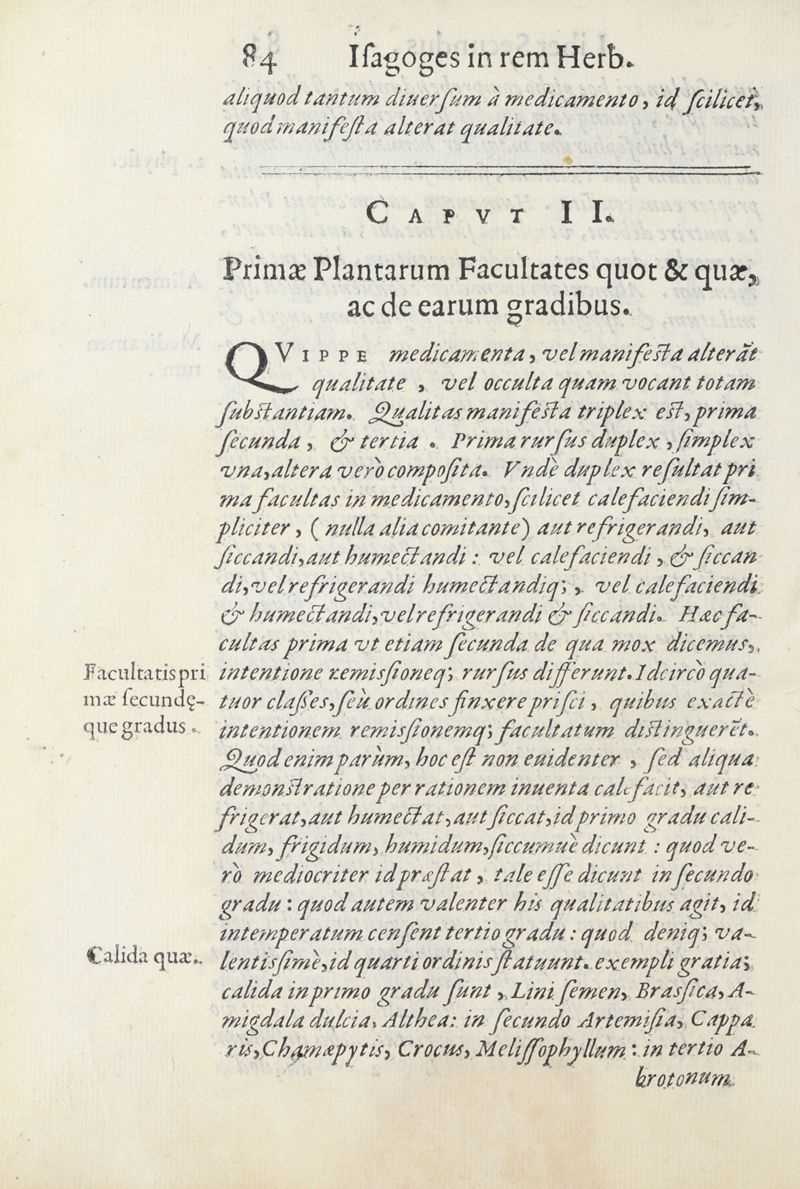 84 Iſagoges in rem Herb.
aliquod tantum diuerſum à medicamento, id ſcilicet,
quod manifeſta alterat qualitate.
CAPVT II.
Primæ Plantarum Facultates quot & quæ,
ac de earum gradibus.
QVIPPE medicamenta, vel manifeſta alterāt
qualitate, vel occulta quam vocant totam
ſubſtantiam. Qualitas manifeſta triplex eſt, prima
ſecunda, & tertia. Prima rurſus duplex, ſimplex
vna, altera verò compoſita. Vnde duplex reſultat pri
ma facultas in medicamento, ſcilicet calefaciendi ſim-
pliciter, (nulla alia comitante) aut refrigerandi, aut
ſiccandi, aut humectandi: vel calefaciendi, & ſiccan
di, vel refrigerandi humectandiq;, vel calefaciendi
& humectandi, vel refrigerandi & ſiccandi. Hæc fa-
cultas prima vt etiam ſecunda de qua mox dicemus,
Facultatis pri
mæ ſecundę-
que gradus.
intentione remiſſioneq; rurſus differunt. Idcircò qua-
tuor claſſes, ſeu ordines finxere priſci, quibus exactè
intentionem remiſſionemq; facultatum diſtinguerēt.
Quod enim parùm, hoc eſt non euidenter, ſed aliqua
demonſtratione per rationem inuenta calefacit, aut re
frigerat, aut humectat, aut ſiccat, id primo gradu cali-
dum, frigidum, humidum, ſiccumuè dicunt: quod ve-
rò mediocriter id præſtat, tale eſſe dicunt in ſecundo
gradu: quod autem valenter his qualitatibus agit, id
intemperatum cenſent tertio gradu: quod deniq; va-
Calida quæ.
lentiſſimè, id quarti ordinis ſtatuunt. exempli gratia;
calida in primo gradu ſunt, Lini ſemen, Braſſica, A-
migdala dulcia, Althea: in ſecundo Artemiſia, Cappa
ris, Chamæpytis, Crocus, Meliſſophyllum: in tertio A-
brotonum